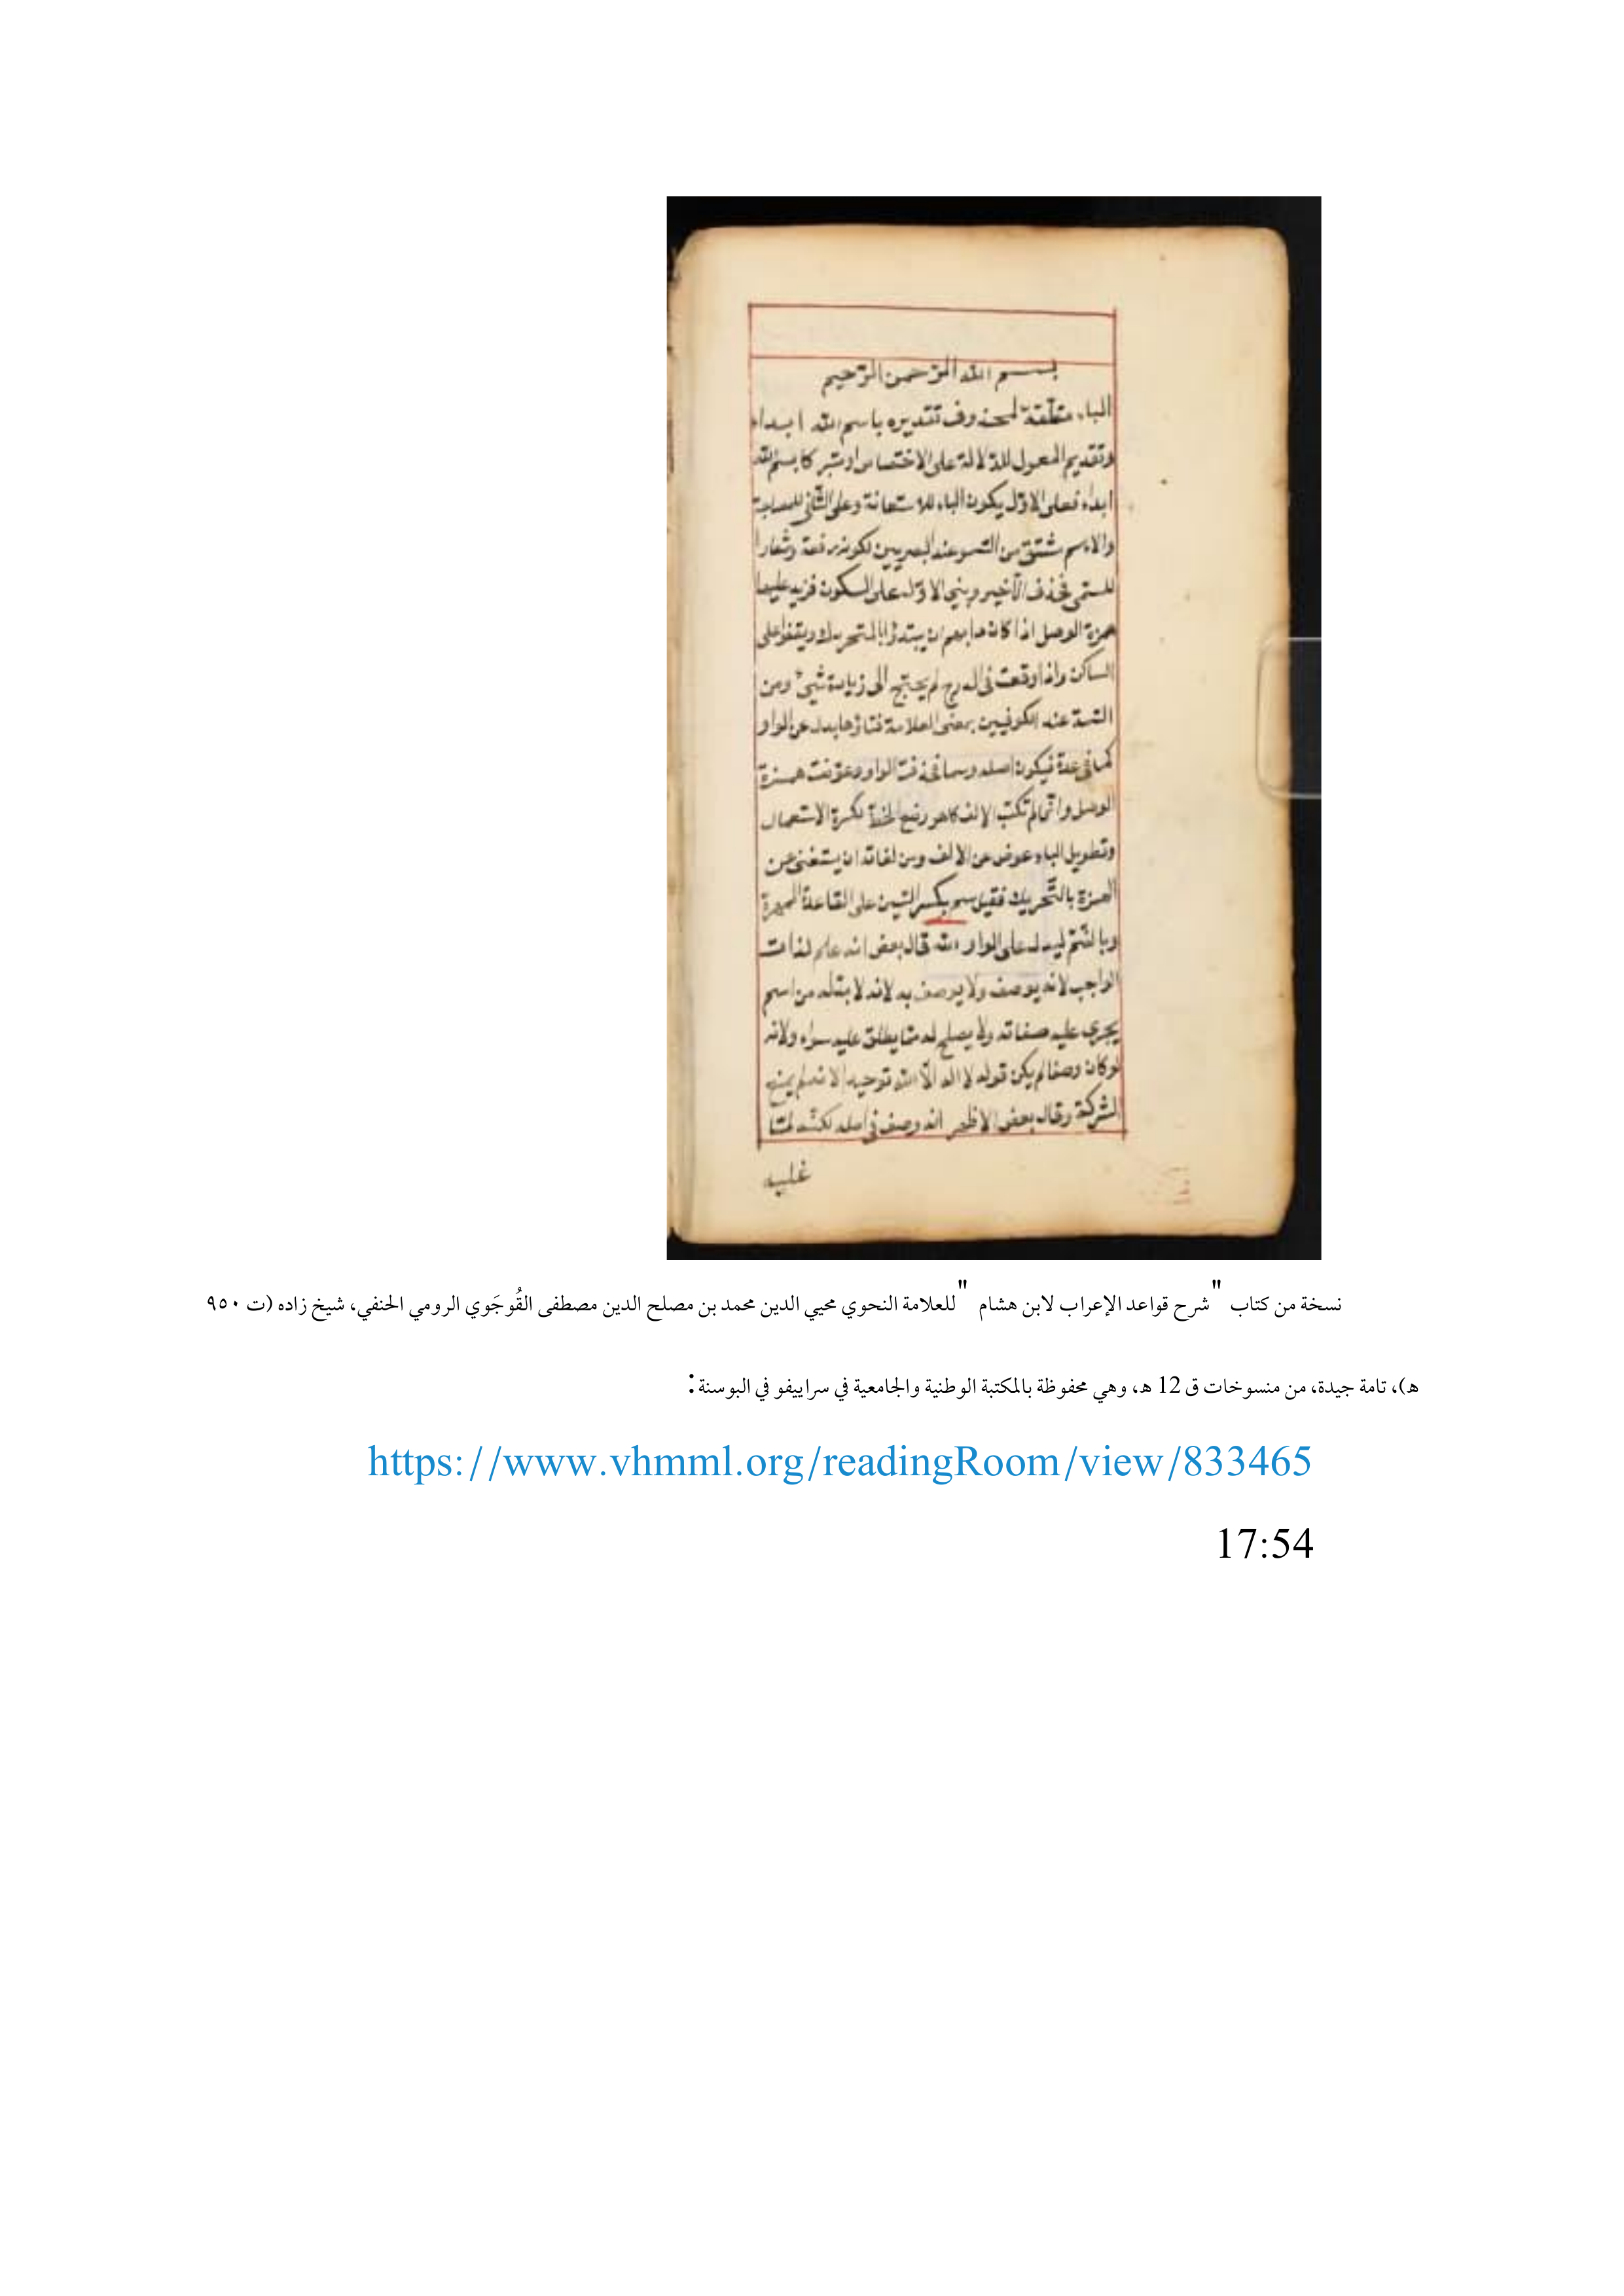 بسم الله الرحمن الرحيم
الباء متعلقة لمحذوف تقديره باسم الله ابداء
وتقديم المعمول للدلالة على الاختصاص او متبركا بسم الله
ابداء فعلى الاول يكون الباء للاستعانة وعلى الثاني للمصاحبة
والاسم مشتق من السمو عند البصريين لكونه رفعة وشعارا
للمسمى فحذف الآخير وبني الاول على السكون فزيد عليها
همزة الوصل اذا كان دابهم ان يبتدؤا بالمتحرك ويقفوا على
الساكن واذا وقعت في الدرج لم يحتج الى زيادة شيئ ومن
السمة عند الكوفيين بمعنى العلامة فتاؤها بدل عن الواو
كما في عدة فيكون اصله وسما فحذفت الواو وعوضت همزة
الوصل وانما لم تكتب الالف كما هو وضع الخط لكثرة الاستعمال
وتطويل الباء عوض عن الالف ومن لغاته ان يستغنى عن
الهمزة بالتحريك فقيل سم بكسر السين على القاعدة
وبالضم ليدل على الواو الله قال بعض انه علم لذات
الواجب لانه يوصف ولا يوصف به لانه لا بد له من اسم
يجرى عليه صفاته ولا يصلح له مما يطلق عليه سواه ولانه
لو كان وصفا لم يكن قوله لا اله الا الله توحيدا لانه لم يمنع
الشركة وقال بعض الاظهر انه وصف في اصله لكنه لما
غلب
نسخة من كتاب "شرح قواعد الإعراب لابن هشام" للعلامة النحوي محيي الدين محمد بن مصلح الدين مصطفى القُوجَوي الرومي الحنفي، شيخ زاده (ت ٩٥٠
ه)، تامة جيدة، من منسوخات ق 12 ه، وهي محفوظة بالمكتبة الوطنية والجامعية في سراييفو في البوسنة:
https://www.vhmml.org/readingRoom/view/833465
17:54